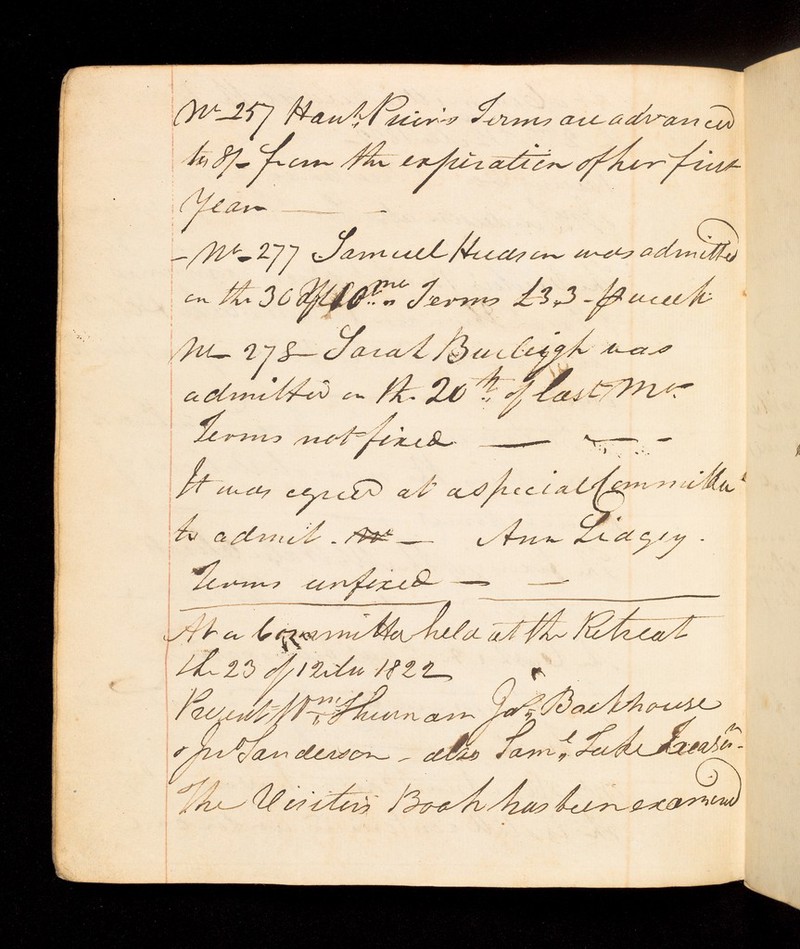 No 257 Hanh. Prior's Terms are advanced
to 8/- from the expiration of her first
Year
- No 277 Samuel Hudson was admitted
on the 30 of 10 mo. Terms £3.3 - ⅌ week
No 278 - Sarah Burleigh was
admitted on the 20th of last Mo.
Terms not fixed - - -
It was agreed at a special Committee
to admit. No - Ann Lidgey.
Terms unfixed - -
At a Committee held at the Retreat
the 23 of 12 1822
Present Wm. Thurnam Jas. Backhouse
& Jno Sanderson - also Saml. Tuke Treasr.
The Visitors Book has been examined